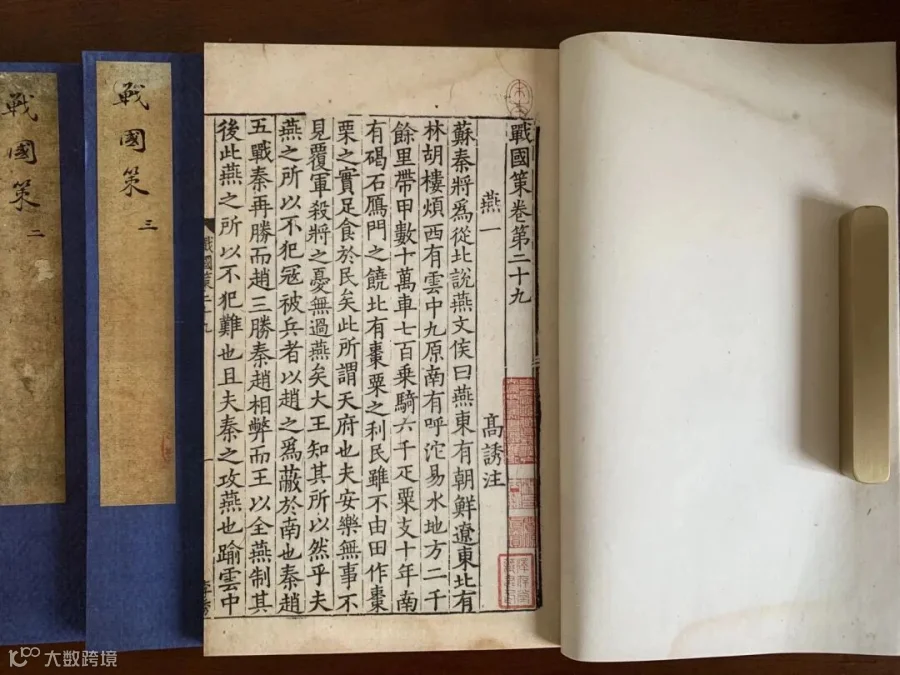 戰國策卷第二十九
燕一
高誘注
蘇秦將爲從北說燕文侯曰燕東有朝鮮遼東北有
林胡樓煩西有雲中九原南有呼沱易水地方二千
餘里帶甲數十萬車七百乘騎六千疋粟支十年南
有碣石鴈門之饒北有棗粟之利民雖不由田作棗
栗之實足食於民矣此所謂天府也夫安樂無事不
見覆軍殺將之憂無過燕矣大王知其所以然乎夫
燕之所以不犯冦被兵者以趙之爲蔽於南也秦趙
五戰秦再勝而趙三勝秦趙相弊而王以全燕制其
後此燕之所以不犯難也且夫秦之攻燕也踰雲中
戰國策二十九
一
戰國策
三
戰國策
二
宋本
大数跨境